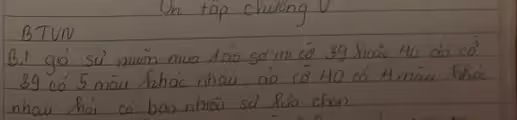 Ôn tập chương V
BTVN
B.1 giả sử muốn mua 1 áo sơ mi cỡ 39 hoặc 40 áo cỡ
39 có 5 màu khác nhau, áo cỡ 40 có 4 màu khác
nhau hỏi có bao nhiêu sự lựa chọn